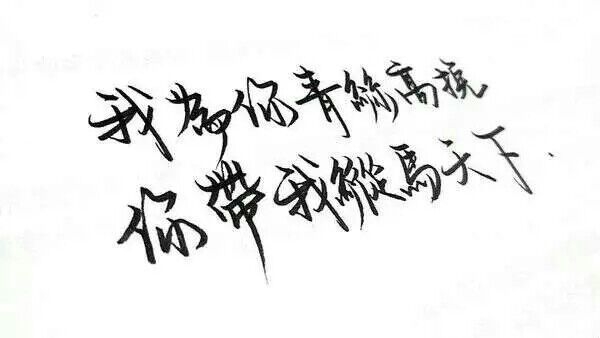 我為你青絲高挽
你帶我縱馬天下.